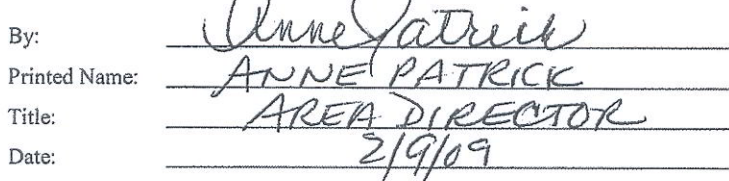 By: Anne Patrick
Printed Name: ANNE PATRICK
Title: AREA DIRECTOR
Date: 2/9/09